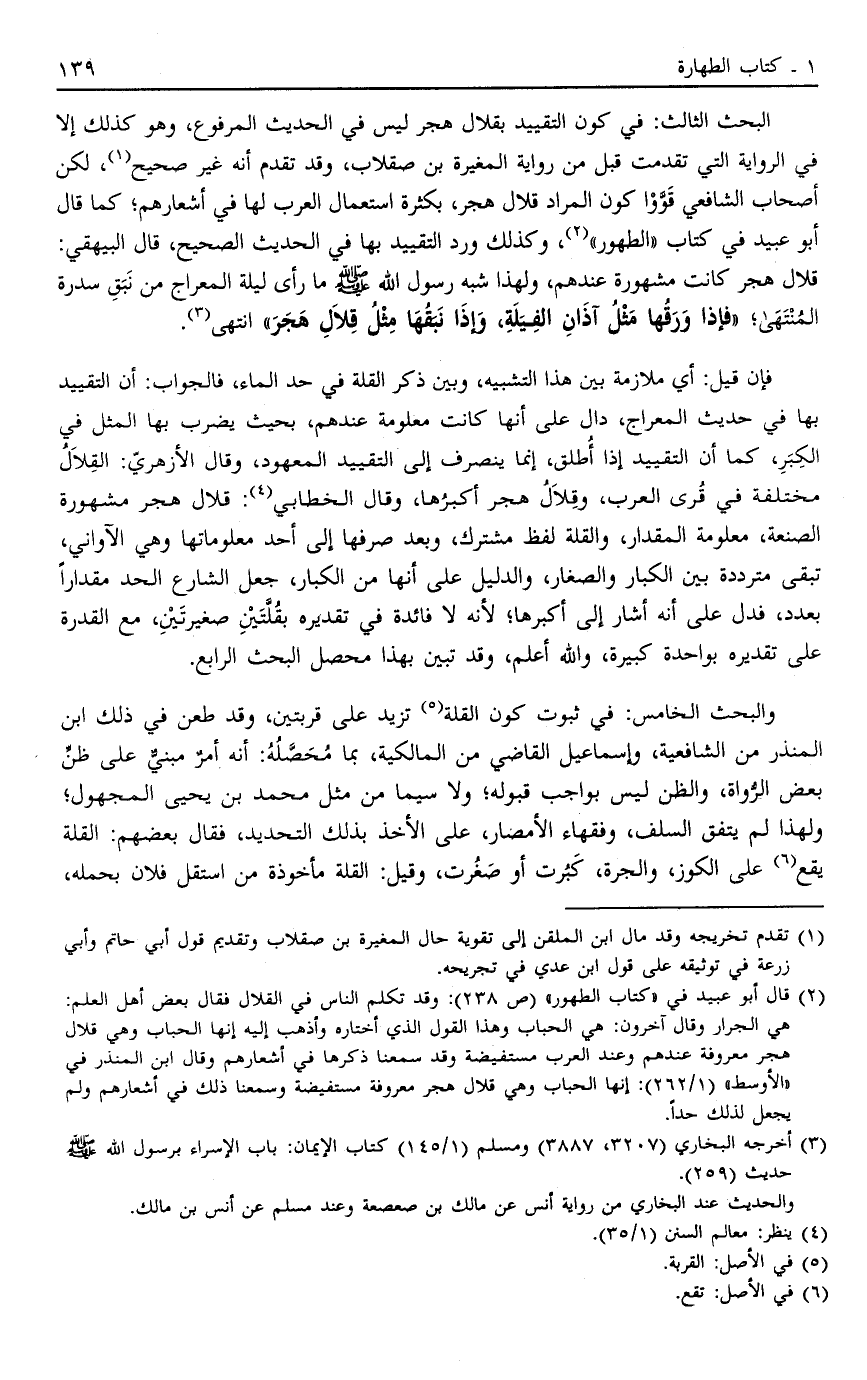 ١ - كتاب الطهارة ١٣٩
البحث الثالث: في كون التقييد بقلال هجر ليس في الحديث المرفوع، وهو كذلك إلا
في الرواية التي تقدمت قبل من رواية المغيرة بن صقلاب، وقد تقدم أنه غير صحيح(١)، لكن
أصحاب الشافعي قَوَّوْا كون المراد قلال هجر، بكثرة استعمال العرب لها في أشعارهم؛ كما قال
أبو عبيد في كتاب «الطهور»(٢)، وكذلك ورد التقييد بها في الحديث الصحيح، قال البيهقي:
قلال هجر كانت مشهورة عندهم، ولهذا شبه رسول الله ﷺ ما رأى ليلة المعراج من نَبَقِ سدرة
المُنْتَهَىٰ؛ «فإذا وَرَقُها مَثْلُ آذَانِ الفِيَلَةِ، وَإِذَا نَبَقُهَا مِثْلُ قِلاَلِ هَجَرَ» انتهى(٣).
فإن قيل: أي ملازمة بين هذا التشبيه، وبين ذكر القلة في حد الماء، فالجواب: أن التقييد
بها في حديث المعراج، دال على أنها كانت معلومة عندهم، بحيث يضرب بها المثل في
الكِبَرِ، كما أن التقييد إذا أُطلق، إنما ينصرف إلى التقييد المعهود، وقال الأزهريّ: القِلاَلُ
مختلفة في قُرى العرب، وقِلاَلُ هجر أكبرُها، وقال الخطابي(٤): قلال هجر مشهورة
الصنعة، معلومة المقدار، والقلة لفظ مشترك، وبعد صرفها إلى أحد معلوماتها وهي الآواني،
تبقى مترددة بين الكبار والصغار، والدليل على أنها من الكبار، جعل الشارع الحد مقداراً
بعدد، فدل على أنه أشار إلى أكبرها؛ لأنه لا فائدة في تقديره بقُلَّتَيْنِ صغيرتَيْنِ، مع القدرة
على تقديره بواحدة كبيرة، والله أعلم، وقد تبين بهذا محصل البحث الرابع.
والبحث الخامس: في ثبوت كون القلة(٥) تزيد على قربتين، وقد طعن في ذلك ابن
المنذر من الشافعية، وإسماعيل القاضي من المالكية، بما مُحَصَّلُهُ: أنه أمرٌ مبنيٌّ على ظنٍّ
بعض الرُّواة، والظن ليس بواجب قبوله؛ ولا سيما من مثل محمد بن يحيى المجهول؛
ولهذا لم يتفق السلف، وفقهاء الأمصار، على الأخذ بذلك التحديد، فقال بعضهم: القلة
يقع(٦) على الكوز، والجرة، كَبُرت أو صَغُرت، وقيل: القلة مأخوذة من استقل فلان بحمله،
(١) تقدم تخريجه وقد مال ابن الملقن إلى تقوية حال المغيرة بن صقلاب وتقديم قول أبي حاتم وأبي
زرعة في توثيقه على قول ابن عدي في تجريحه.
(٢) قال أبو عبيد في «كتاب الطهور» (ص ٢٣٨): وقد تكلم الناس في القلال فقال بعض أهل العلم:
هي الجرار وقال آخرون: هي الحباب وهذا القول الذي أختاره وأذهب إليه إنها الحباب وهي قلال
هجر معروفة عندهم وعند العرب مستفيضة وقد سمعنا ذكرها في أشعارهم وقال ابن المنذر في
«الأوسط» (٢٦٢/١): إنها الحباب وهي قلال هجر معروفة مستفيضة وسمعنا ذلك في أشعارهم ولم
يجعل لذلك حداً.
(٣) أخرجه البخاري (٣٢٠٧، ٣٨٨٧) ومسلم (١٤٥/١) كتاب الإيمان: باب الإسراء برسول الله ﷺ
حديث (٢٥٩).
والحديث عند البخاري من رواية أنس عن مالك بن صعصعة وعند مسلم عن أنس بن مالك.
(٤) ينظر: معالم السنن (٣٥/١).
(٥) في الأصل: القربة.
(٦) في الأصل: تقع.